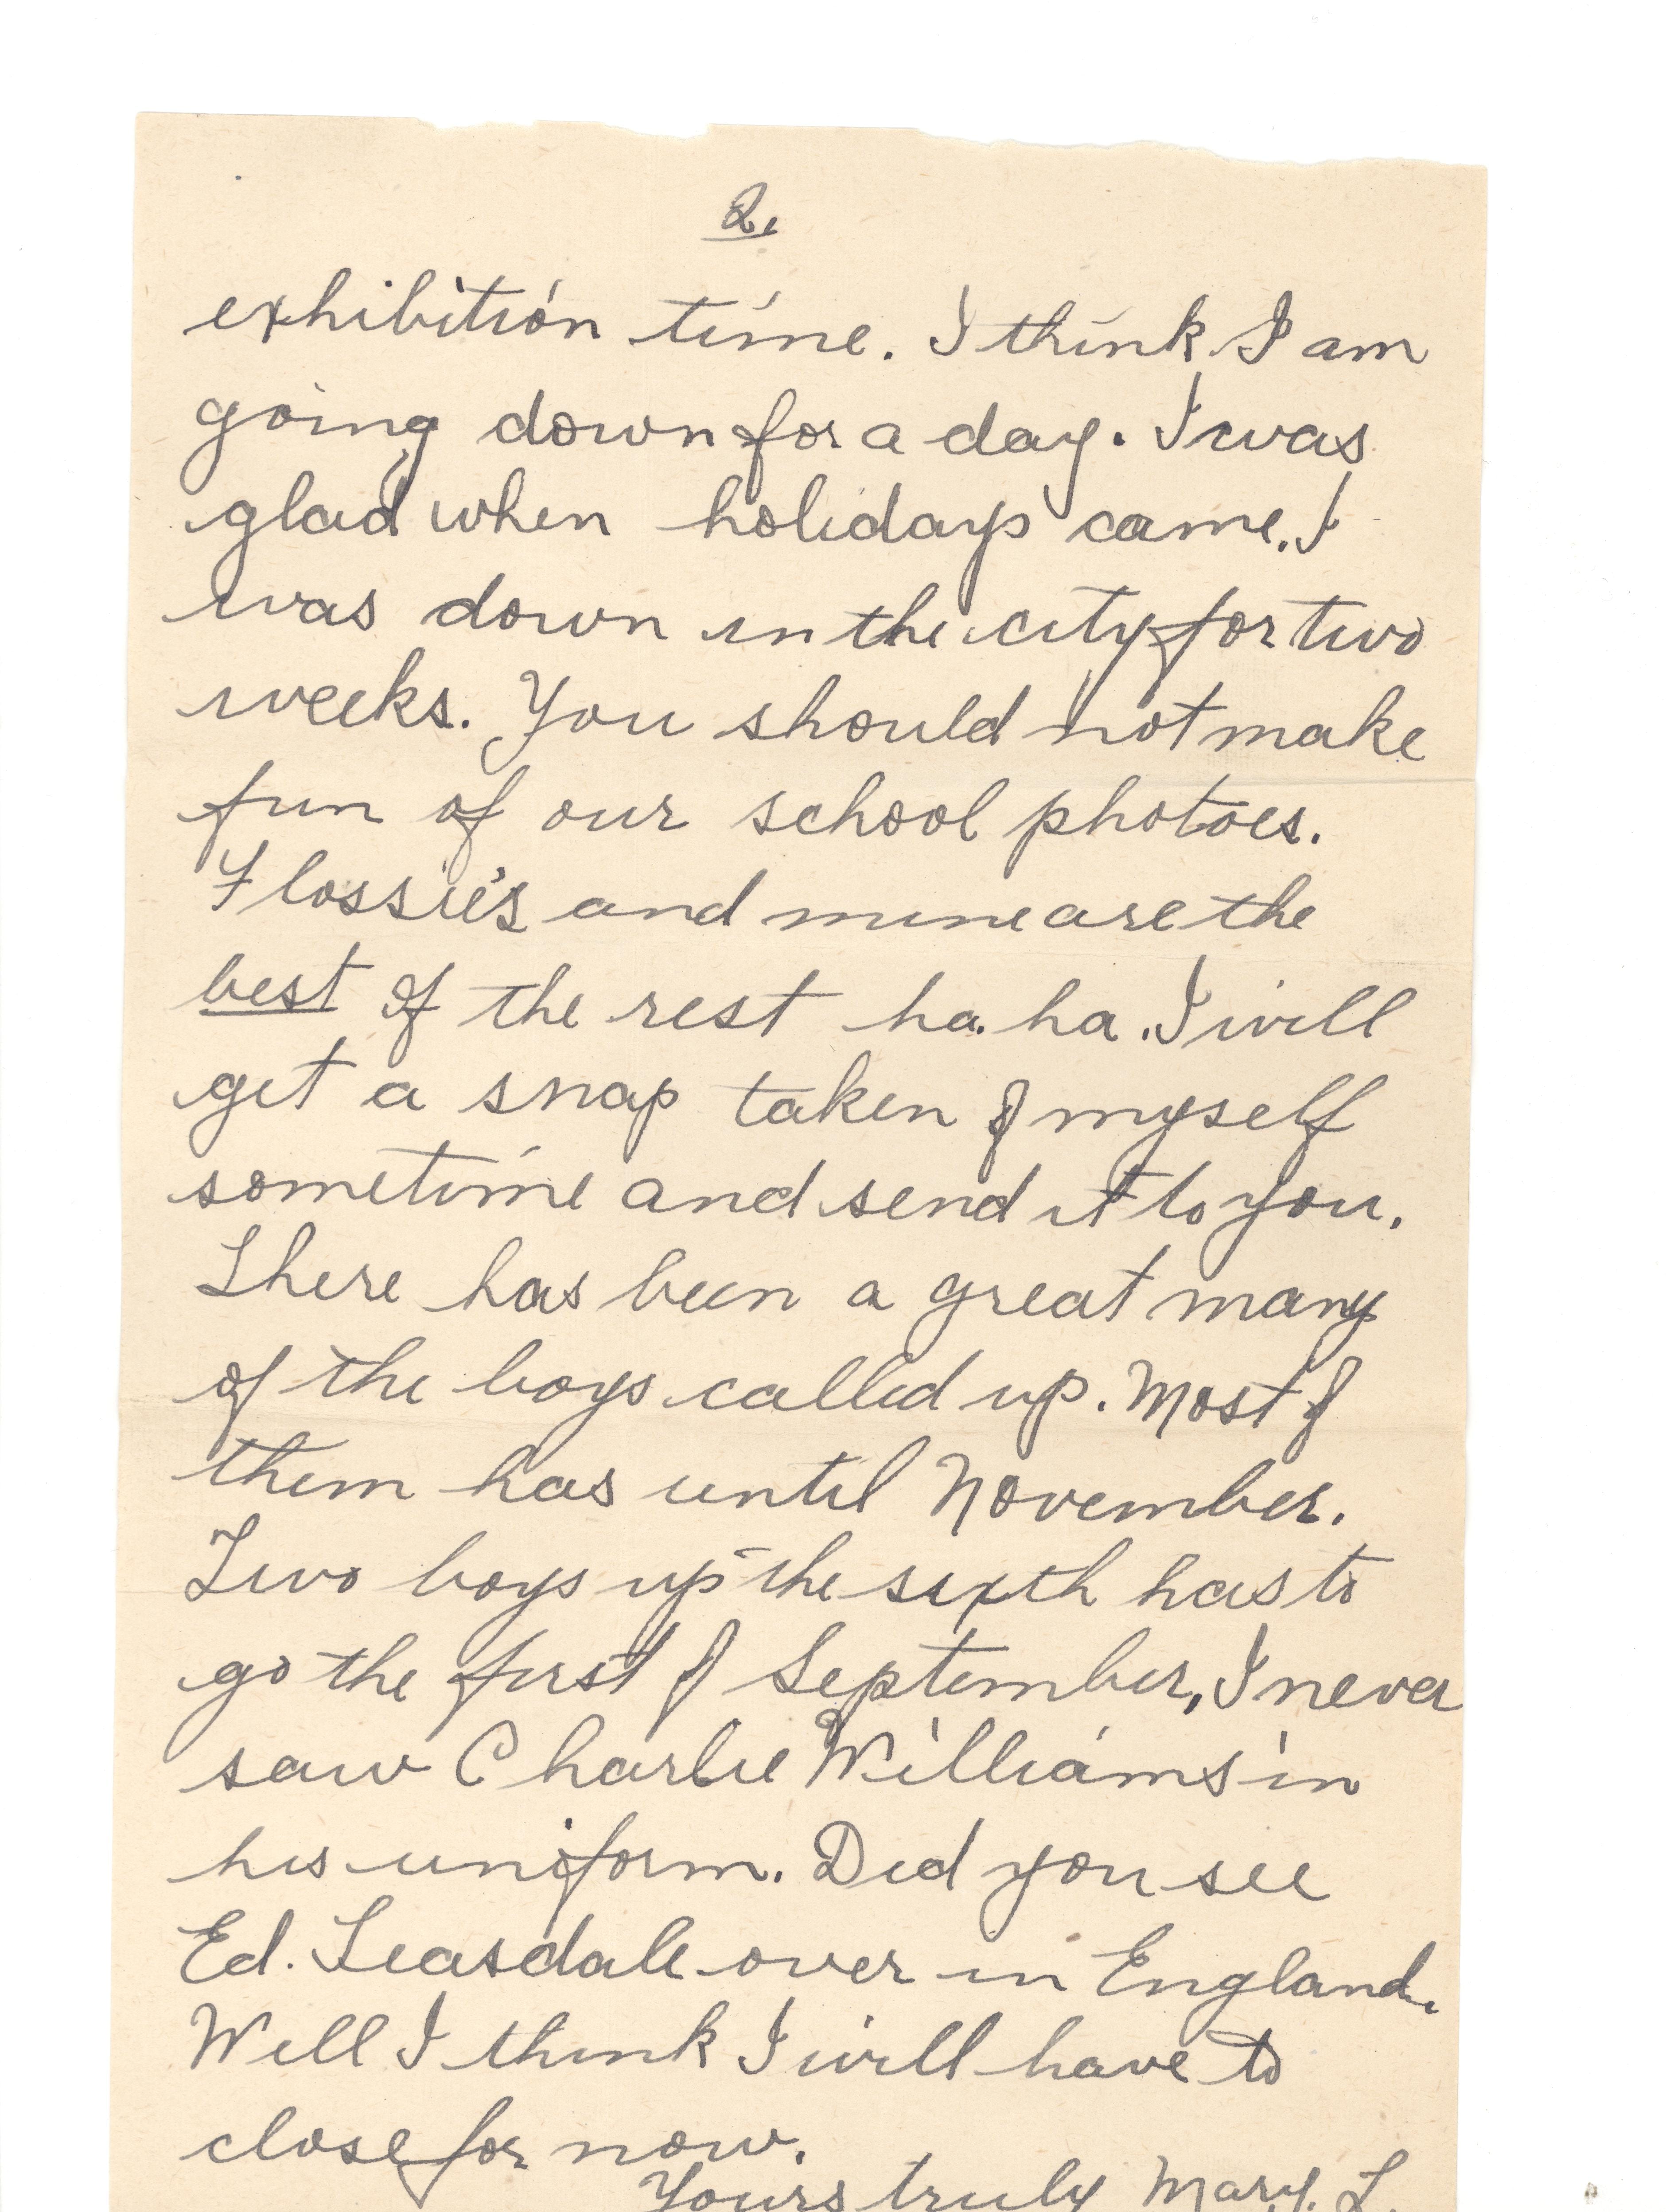 2.
exhibition time. I think I am
going down for a day. I was
glad when holidays came. I
was down in the city for two
weeks. You should not make
fun of our school photoes.
Flossie's and mine are the
best of the rest ha. ha. I will
get a snap taken of myself
sometime and send it to you.
There has been a great many
of the boys called up. Most of
them has until November.
Two boys up the sixth has to
go the first of September, I never
saw Charlie Williams in
his uniform. Did you see
Ed. Teasdale over in England.
Well I think I will have to
close for now.
Yours truly Mary. L.